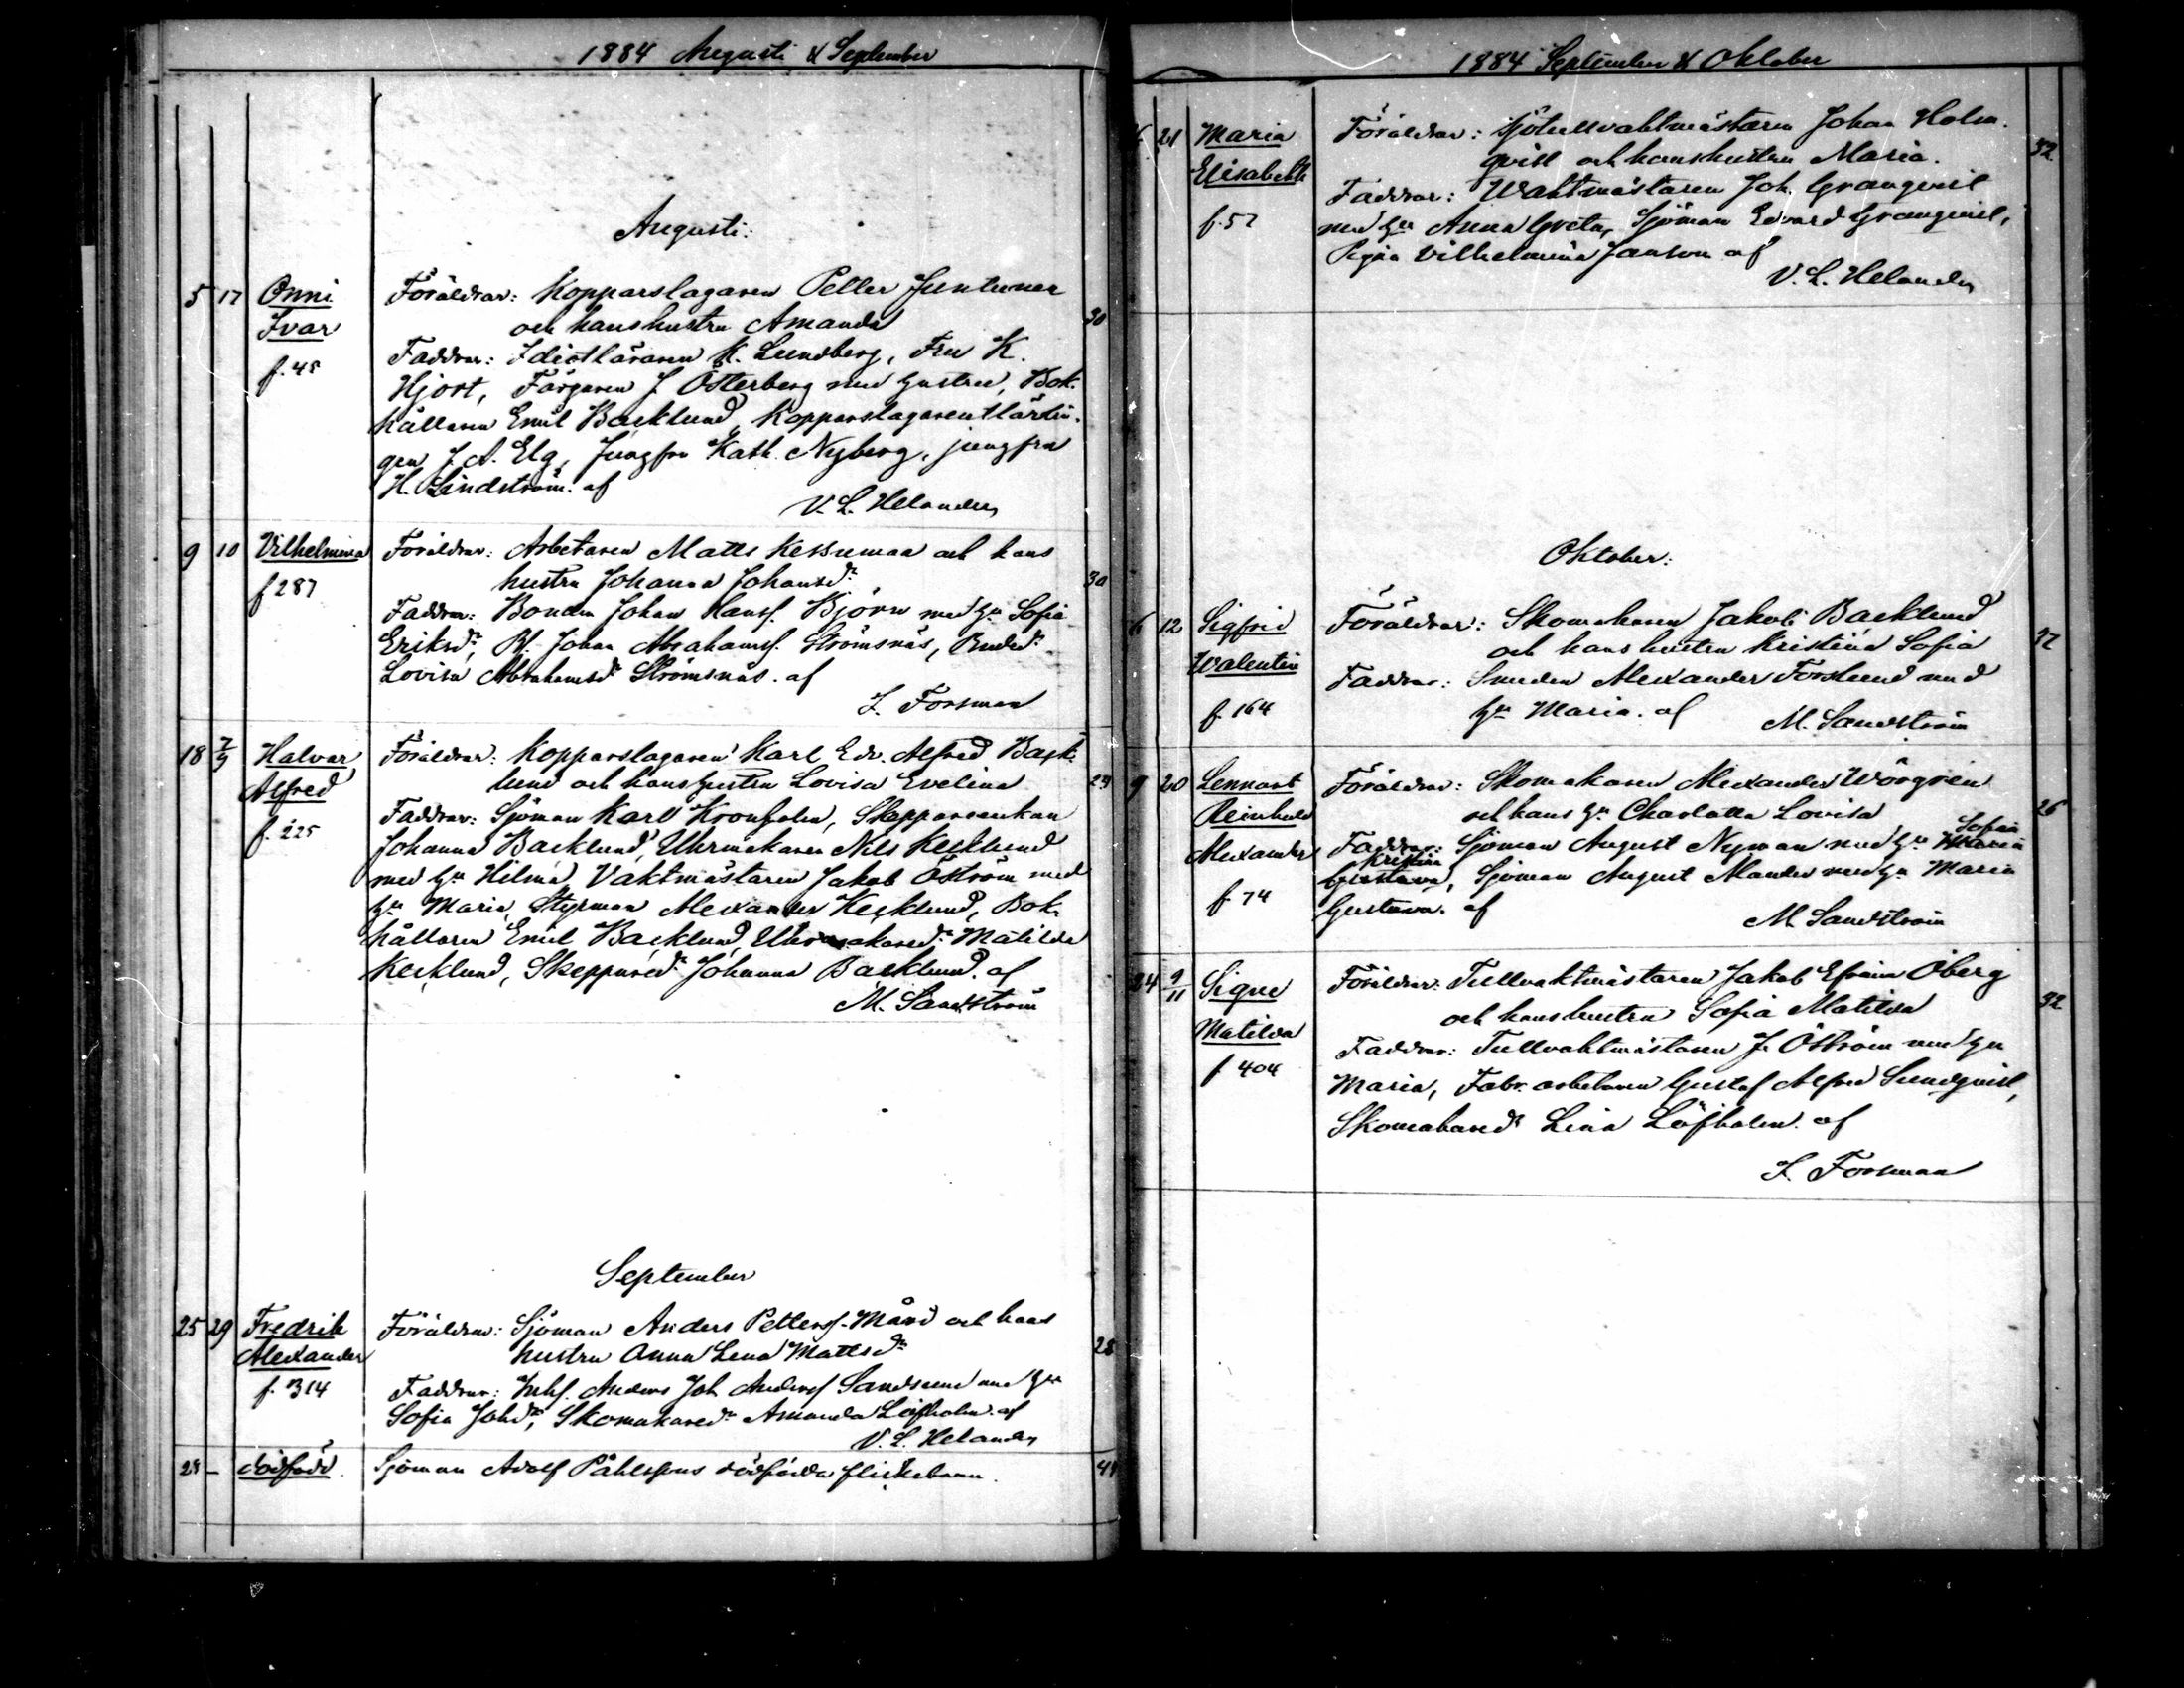 1884 Augusti & September
Augusti:
5 17 Onni Ivar f. 45
Föräldrar: Kopparslagaren Petter Juntunen
och hans hustru Amanda 30
Faddrar: Idiotläraren K. Lundberg, Fru K.
Hjort, Färgaren J Österberg med hustru, Bok-
hållaren Emil Backlund, Kopparslagarentlärlin-
gen J. A. Elg, Jungfru Kath. Nyberg, jungfru
H. Lindström. af
V. L. Helander
9 10 Vilhelmina f 287
Föräldrar: Arbetaren Matts Kessumaa och hans
hustru Johanna Johansdr 30
Faddrar: Bonden Johan Hansf. Björn med hu Sofia
Eriksdr, Johan Abrahamsf. Strömsnäs,
Lovisa Abrahamsdr Strömsnäs. af
Z. Forsman
18 7/9 Halvar Alfred f. 225
Föräldrar: Kopparslagaren Karl Edv. Alfred Back-
lund och hans hustru Lovisa Evelina 29
Faddrar: Sjöman Karl Kronholm, Skepparenkan
Johanna Backlund, Uhrmakaren Nils Kecklund
med hu Hilma, Vaktmästaren Jakob Öström med
hu Maria, Styrman Alexander Kecklund, Bok-
hållaren Emil Backlund, Uhrmakaredr Matilda
Kecklund, Skepparedr Johanna Backlund. af
M. Sandström
September
25 29 Fredrik Alexander f. 314
Föräldrar: Sjöman Anders Pettersf. Mård och hans
hustru Anna Lena Mattsdr 28
Faddrar: Inhs. Anders Joh Andersf Sandsund med hu
Sofia Johdr, Skomakaredr Amanda Löfholm. af
V. L. Helander
28 – dödfödd.
Sjöman Adolf Påhlssons dödfödda flickebarn. 44
1884 September & Oktober
21 Maria Elisabeth f. 57
Föräldrar: Sjötullvaktmästaren Johan Holm-
qvist och hans hustru Maria. 32
Faddrar: Waktmästaren Joh. Granqvist
med hu Anna Greta, Sjöman Edvard Granqvist,
Pigan Vilhelmina Janson af
V. L. Helander
Oktober:
6 12 Sigfrid Walentin f. 164
Föräldrar: Skomakaren Jakob Backlund
och hans hustru Kristina Sofia 37
Faddrar: Smeden Alexander Forslund med
hu Maria. af M. Sandström
9 20 Lennart Reinhold Alexander f. 74
Föräldrar: Skomakaren Alexander Wörgren
och hans hu Charlotta Lovisa 26
Faddrar: Sjöman August Nyman med hu Maria Sofia
Gustava Kristina, Sjöman August Mander med hu Maria
Gustava. af
M. Sandström
24 9/11 Signe Matilda f 404
Föräldrar: Tullvaktmästaren Jakob Efraim Öberg
och hans hustru Sofia Matilda 32
Faddrar: Tullvaktmästaren J. Öström med hu
Maria, Fabr. arbetaren Gustaf Alfred Sundqvist,
Skomakaredr Lina Löfholm. af
Z. Forsman